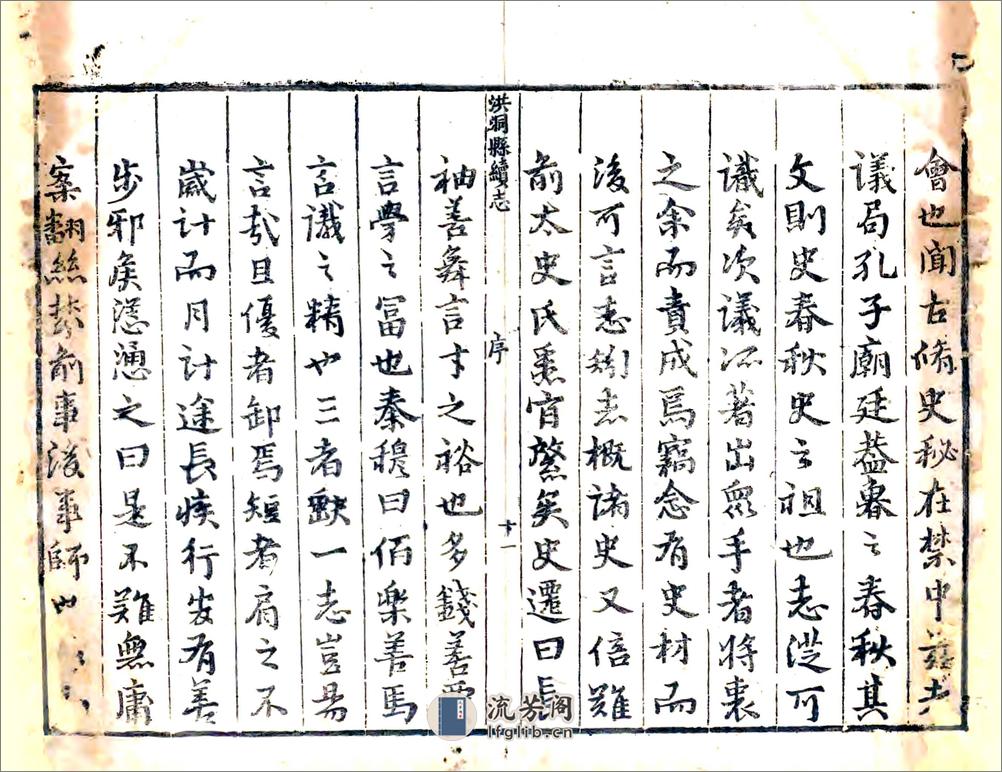 會也聞古脩史秘在禁中茲
議局孔子廟廷葢魯之春秋其
文則史春秋史之祖也志從可
識矣次議乃著出眾手者將裏
之余而責成焉竊念有史材而
後可言志矧志概諸史又信難
前太史氏悉官繁矣史遷曰長
洪洞縣續志
序
十一
袖善舞言才之裕也多錢善賈
言學之冨也秦穆曰佰樂善馬
言識之精也三者缺一志豈易
言哉且優者卸焉短者肩之不
歲計而月計途長疾行安有善
步邪矦慫慂之曰是不難無庸
案翻絲棼前事後事師也
流芳阁
lfglib.cn